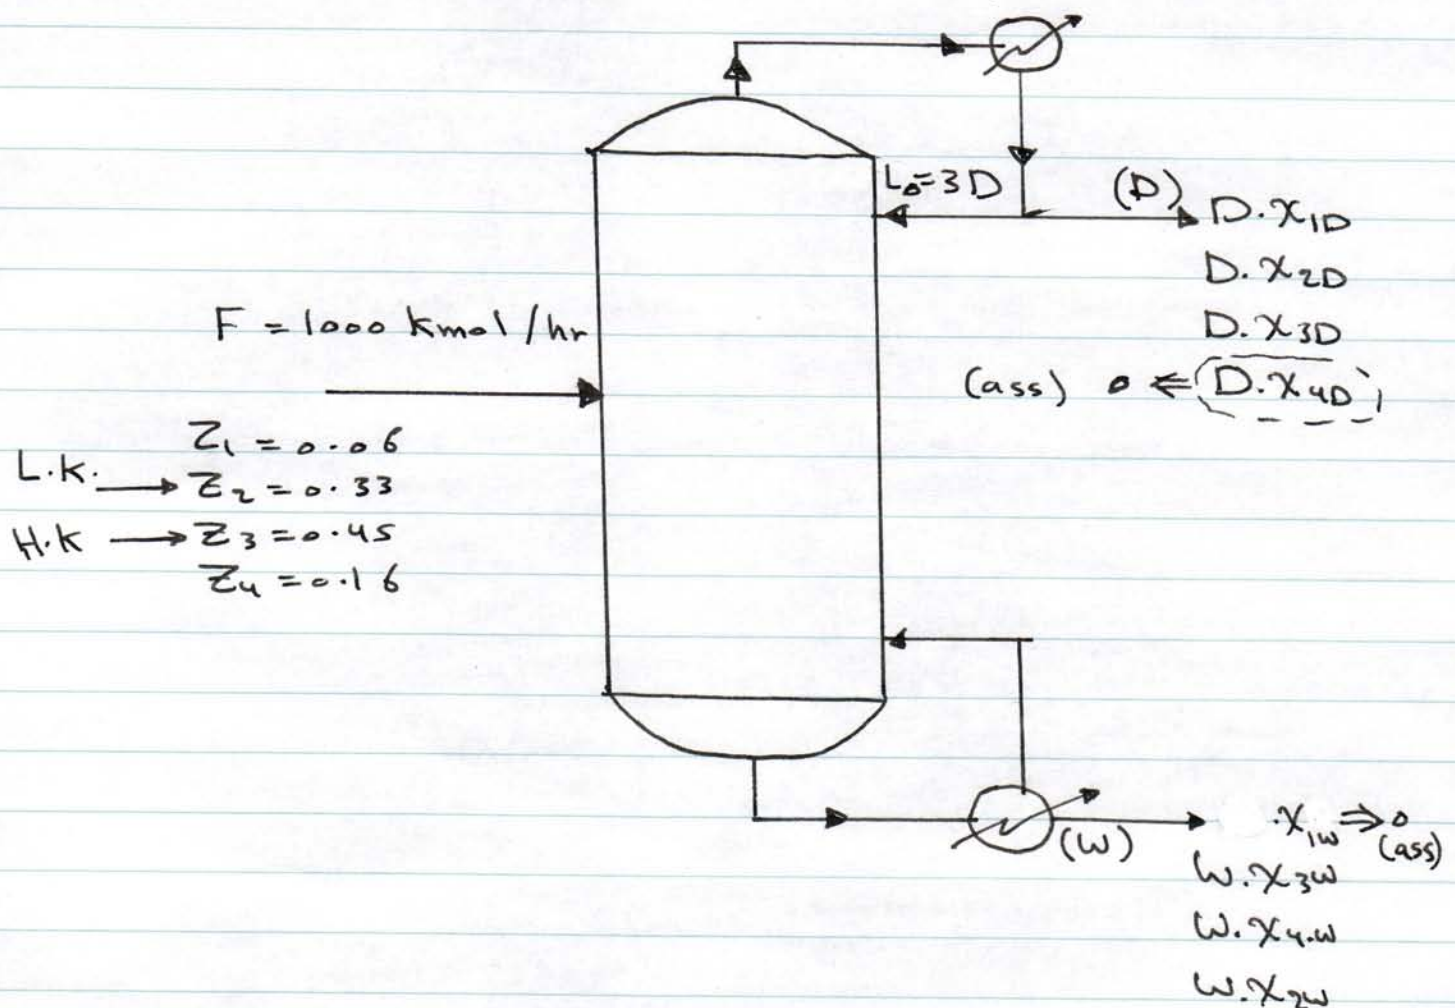 L₀=3D
(D)
D.x₁D
D.x₂D
D.x₃D
(ass) 0 ⇐ D.x₄D
F = 1000 kmol/hr
Z₁ = 0.06
L.K. → Z₂ = 0.33
H.K → Z₃ = 0.45
Z₄ = 0.16
(W)
.x₁w ⇒ 0
(ass)
W.x₃w
W.x₄.w
W.x₂w